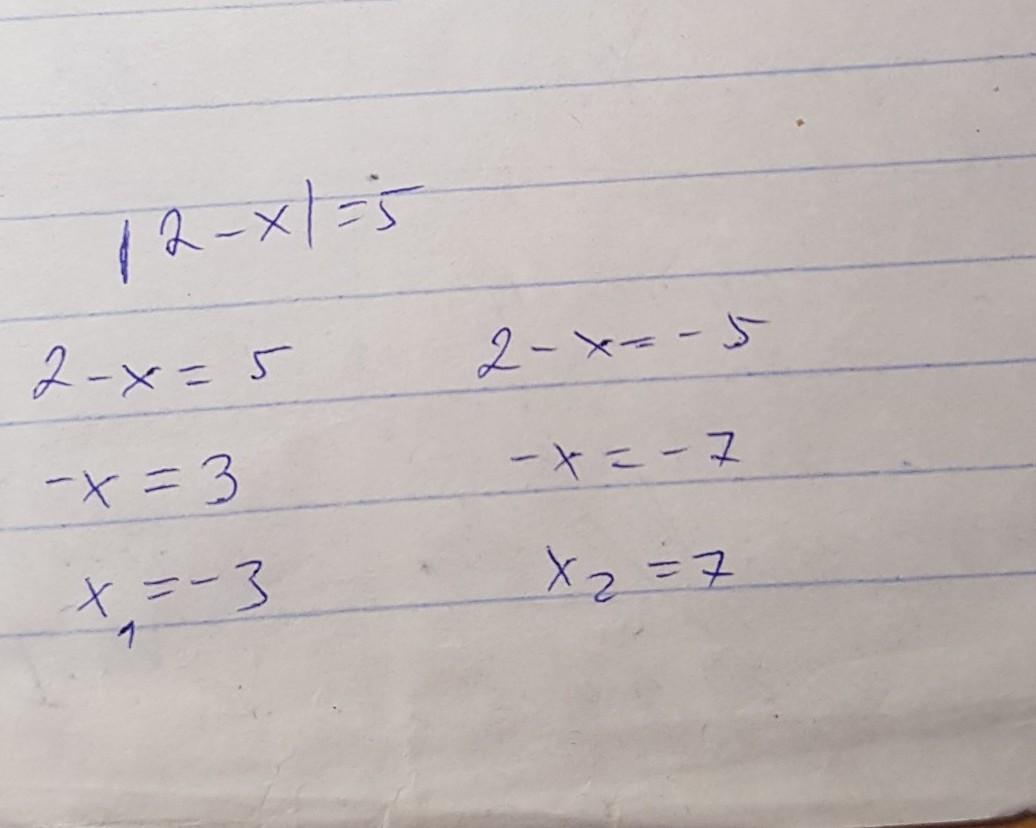 |2-x|=5
2-x=5 2-x=-5
-x=3 -x=-7
x₁=-3 x₂=7